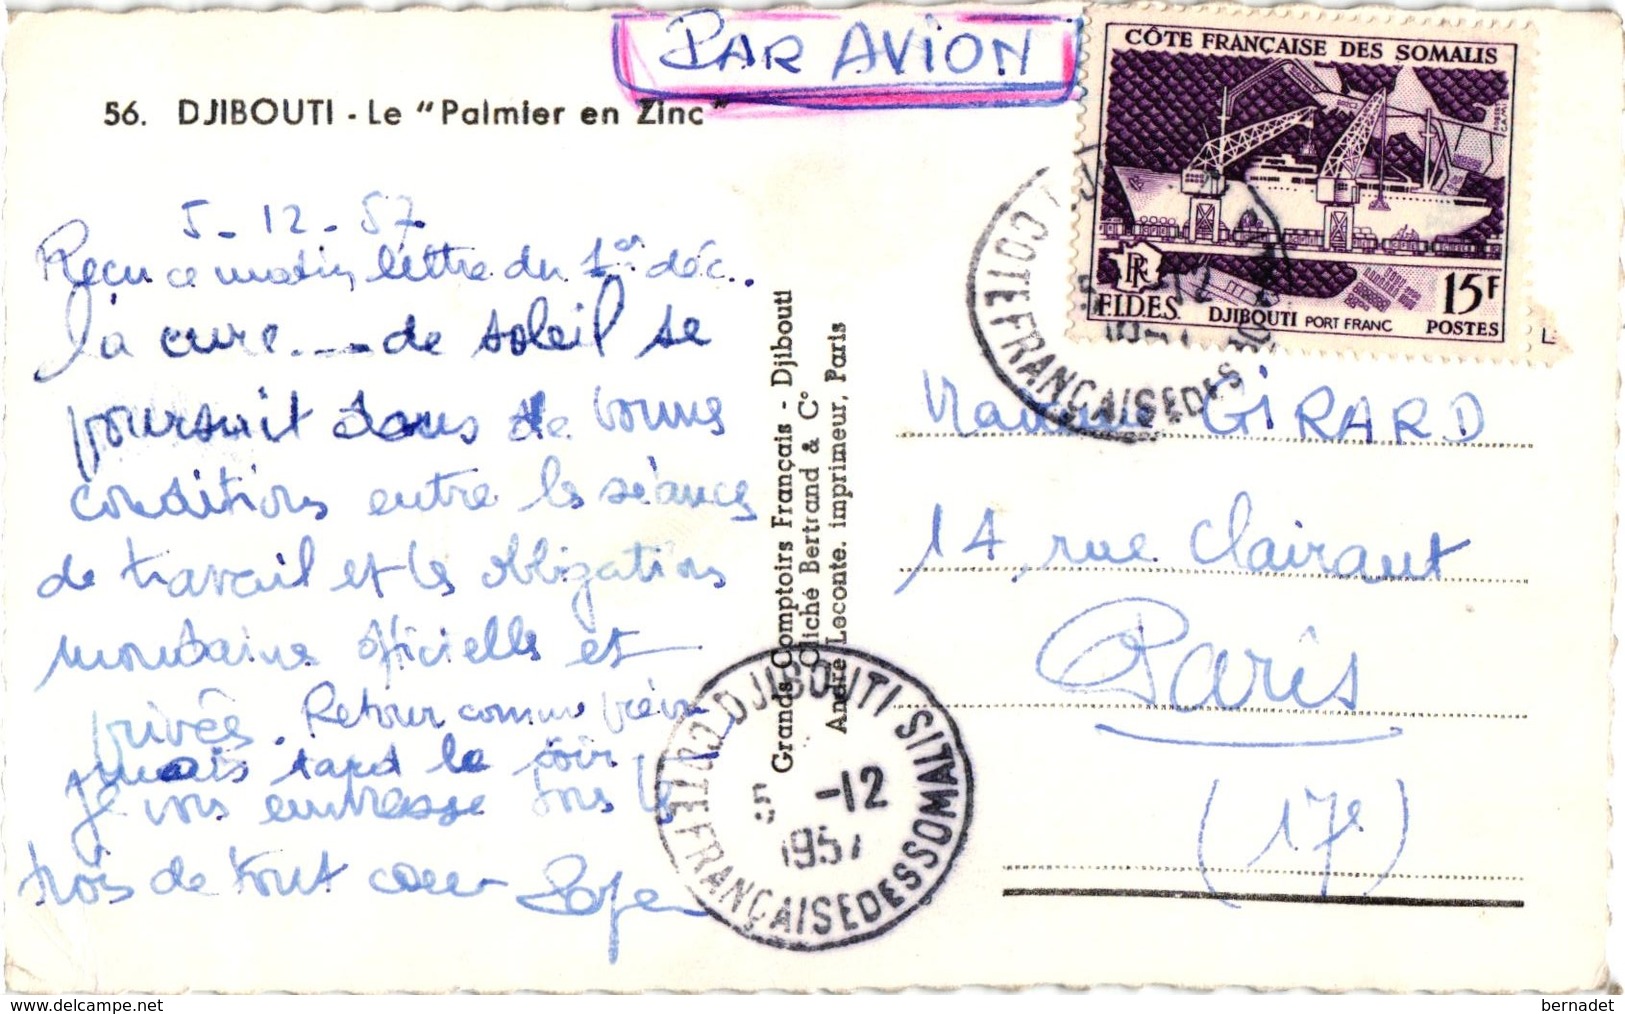 PAR AVION
56. DJIBOUTI - Le "Palmier en Zinc"
CÔTE FRANÇAISE DES SOMALIS
F.I.D.E.S.
RF
DJIBOUTI PORT FRANC
15F
POSTES
5-12-57
Reçu ce matin lettre du 1er déc..
la cure... de soleil se
poursuit dans de bonnes
conditions entre les séances
de travail et les obligations
mondaines officielles et
privées. Retour comme prévu
mais tard le soir
je vous embrasse tous les
trois de tout coeur
Grands Comptoirs Français - Djibouti
Cliché Bertrand & C°
André Leconte. imprimeur, Paris
Madame GIRARD
14, rue Clairaut
Paris
(17e)
DJIBOUTI
5 -12
1957
COTE FRANÇAISE DES SOMALIS
DJIBOUTI
5 -12
1957
COTE FRANÇAISE DES SOMALIS
bernadet
www.delcampe.net